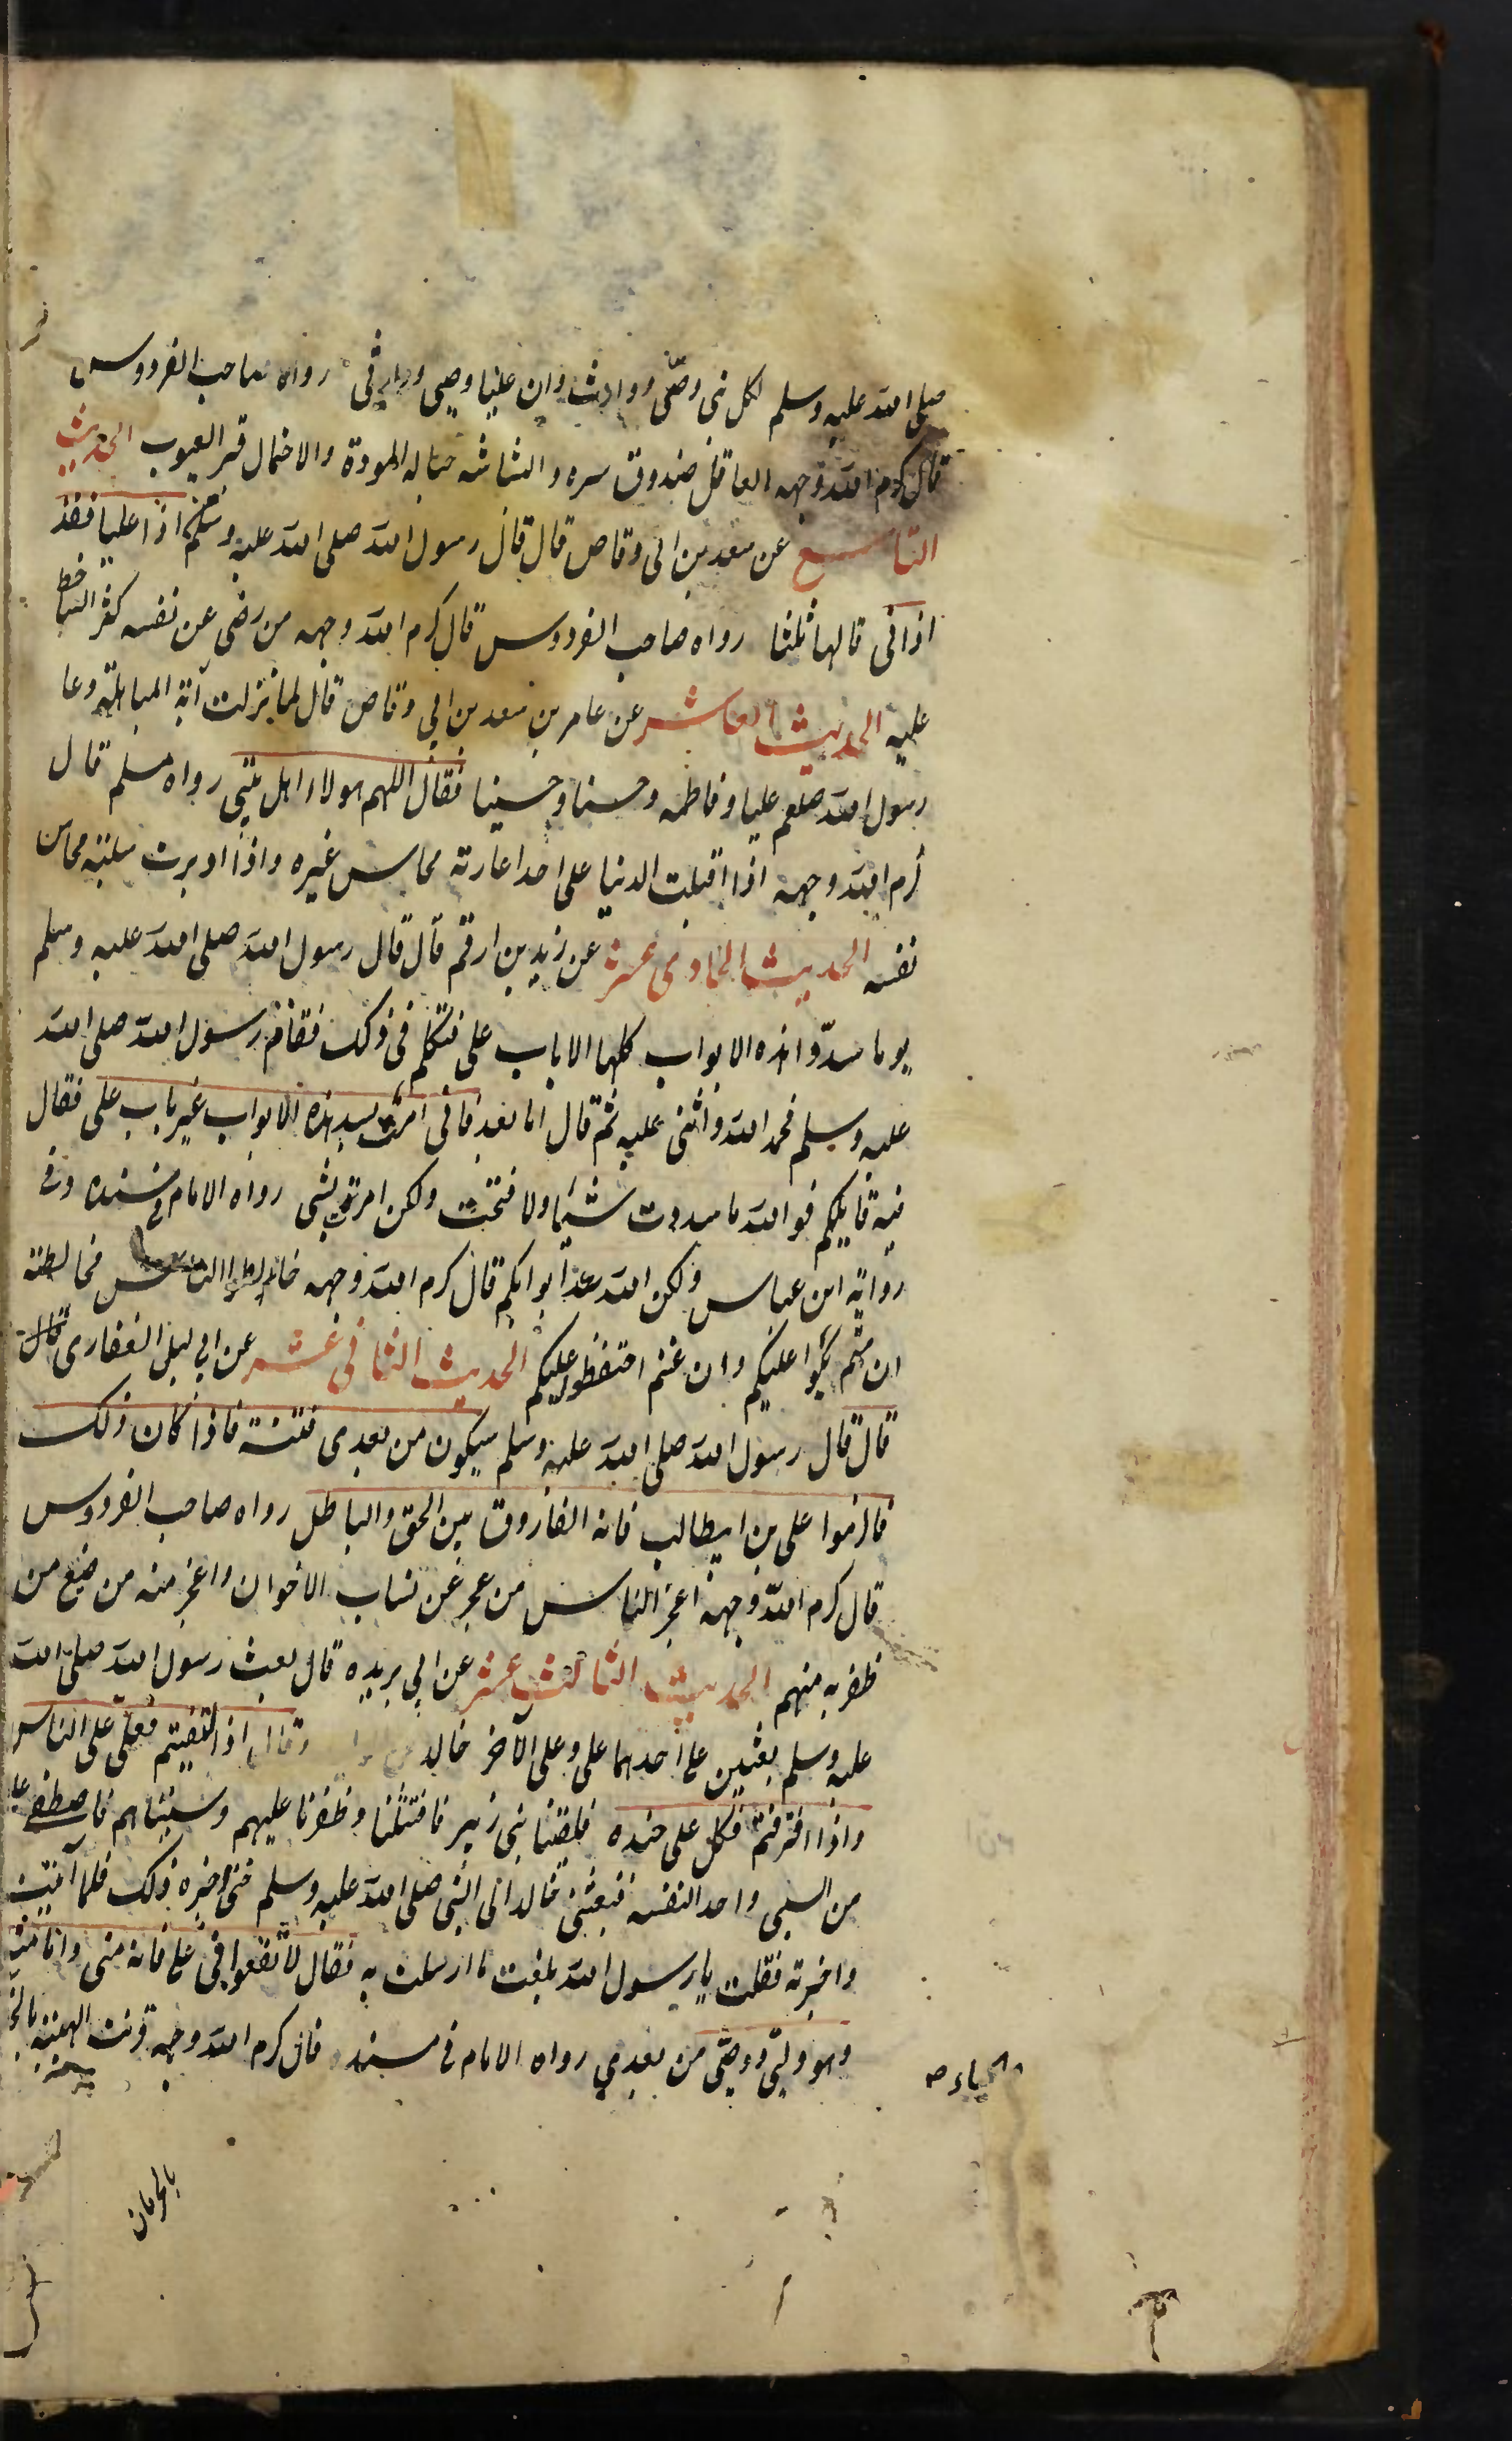 صلى الله عليه وسلم لكل نبى وصى ووارث وان عليا وصيى ووارثى رواه صاحب الفردوس
قال كرم الله وجهه العاقل صندوق سره والبشاشه حباله المودة والاحتمال قبر العيوب الحديث
التاسع عن سعد بن ابى وقاص قال قال رسول الله صلى الله عليه وسلم من اذا عليا فقد
اذانى قالها ثلثا رواه صاحب الفردوس قال كرم الله وجهه من رضى عن نفسه كثر الساخط
عليه الحديث العاشر عن عامر بن سعد بن ابي وقاص قال لما نزلت آية المباهلة دعا
رسول الله صلعم عليا وفاطمه وحسنا وحسينا فقال اللهم هولاء اهل بيتى رواه مسلم قال
كرم الله وجهه اذا اقبلت الدنيا على احد اعارته محاسن غيره واذا ادبرت سلبته محاسن
نفسه الحديث الحادى عشر عن زيد بن ارقم قال قال رسول الله صلى الله عليه وسلم
يوما سدوا هذه الابواب كلها الا باب على فتكلم فى ذلك فقام رسول الله صلى الله
عليه وسلم فحمد الله واثنى عليه ثم قال اما بعد فانى امرت بسد هذه الابواب غير باب على فقال
فيه قايلكم فو الله ما سددت شيئا ولا فتحت ولكن امرت بشى رواه الامام فى مسنده وفى
رواية ابن عباس ولكن الله سد ابوابكم قال كرم الله وجهه خالطوا الناس مخالطة
ان متم بكوا عليكم وان غبتم احتفظوا عليكم الحديث الثانى عشر عن ابى ليلى الغفارى قال
قال قال رسول الله صلى الله عليه وسلم سيكون من بعدى فتنة فاذا كان ذلك
فالزموا على بن ابيطالب فانه الفاروق بين الحق والباطل رواه صاحب الفردوس
قال كرم الله وجهه اعجز الناس من عجز عن اكتساب الاخوان واعجز منه من ضيع من
ظفر به منهم الحديث الثالث عشر عن ابي بريده قال بعث رسول الله صلى الله
عليه وسلم بعثين على احدهما على وعلى الآخر خالد وقال اذا التقيتم فعلى على الناس
واذا افترقتم فكل على جنده فلقينا بنى زبير فاقتتلنا وظفرنا عليهم وسبيناهم فاصطفى على
من السبى واحد لنفسه فبعثنى خالد الى النبى صلى الله عليه وسلم حتى اخبره ذلك فلما آتيت
واخبرته فقلت يا رسول الله بلغت ما ارسلت به فقال لا تقعوا فى على فانه منى وانا منه
وهو وليى ووصيى من بعدي رواه الامام فى مسنده قال كرم الله وجهه قرنت الهيبة بالخيبة
والحياء صح
بالحرمان